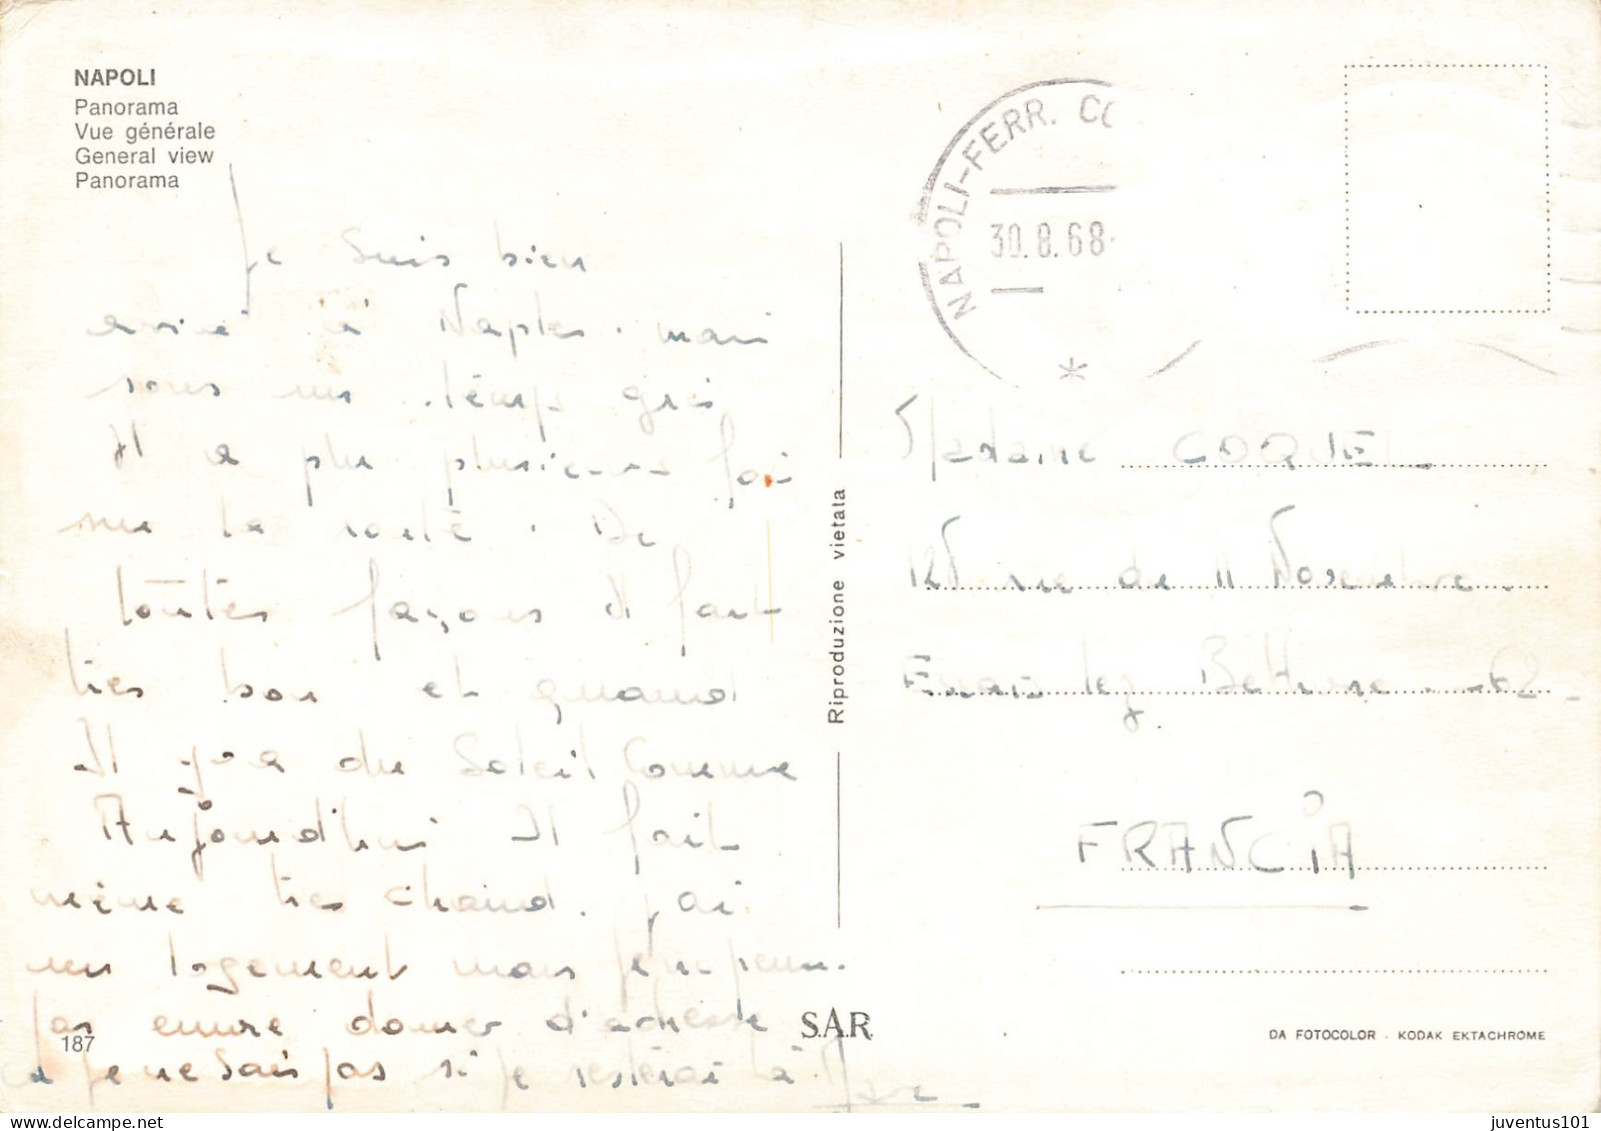 NAPOLI
Panorama
Vue générale
General view
Panorama
Je suis bien
arrivé à Naples. mais
sous un temps gris
Il a plu plusieurs fois
sur la route. De
toutes façons il fait
très bon et quand
Il y a du Soleil Comme
Aujourd'hui Il fait
même très chaud. J'ai
un logement mais je ne peux
pas encore donner d'adresse
car je ne sais pas si je resterai là
187
S.A.R.
Riproduzione vietata
NAPOLI-FERR. CO
30.8.68
Madame COQUEL
rue du 11 Novembre
lez Bethune 62
FRANCiA
DA FOTOCOLOR . KODAK EKTACHROME
juventus101